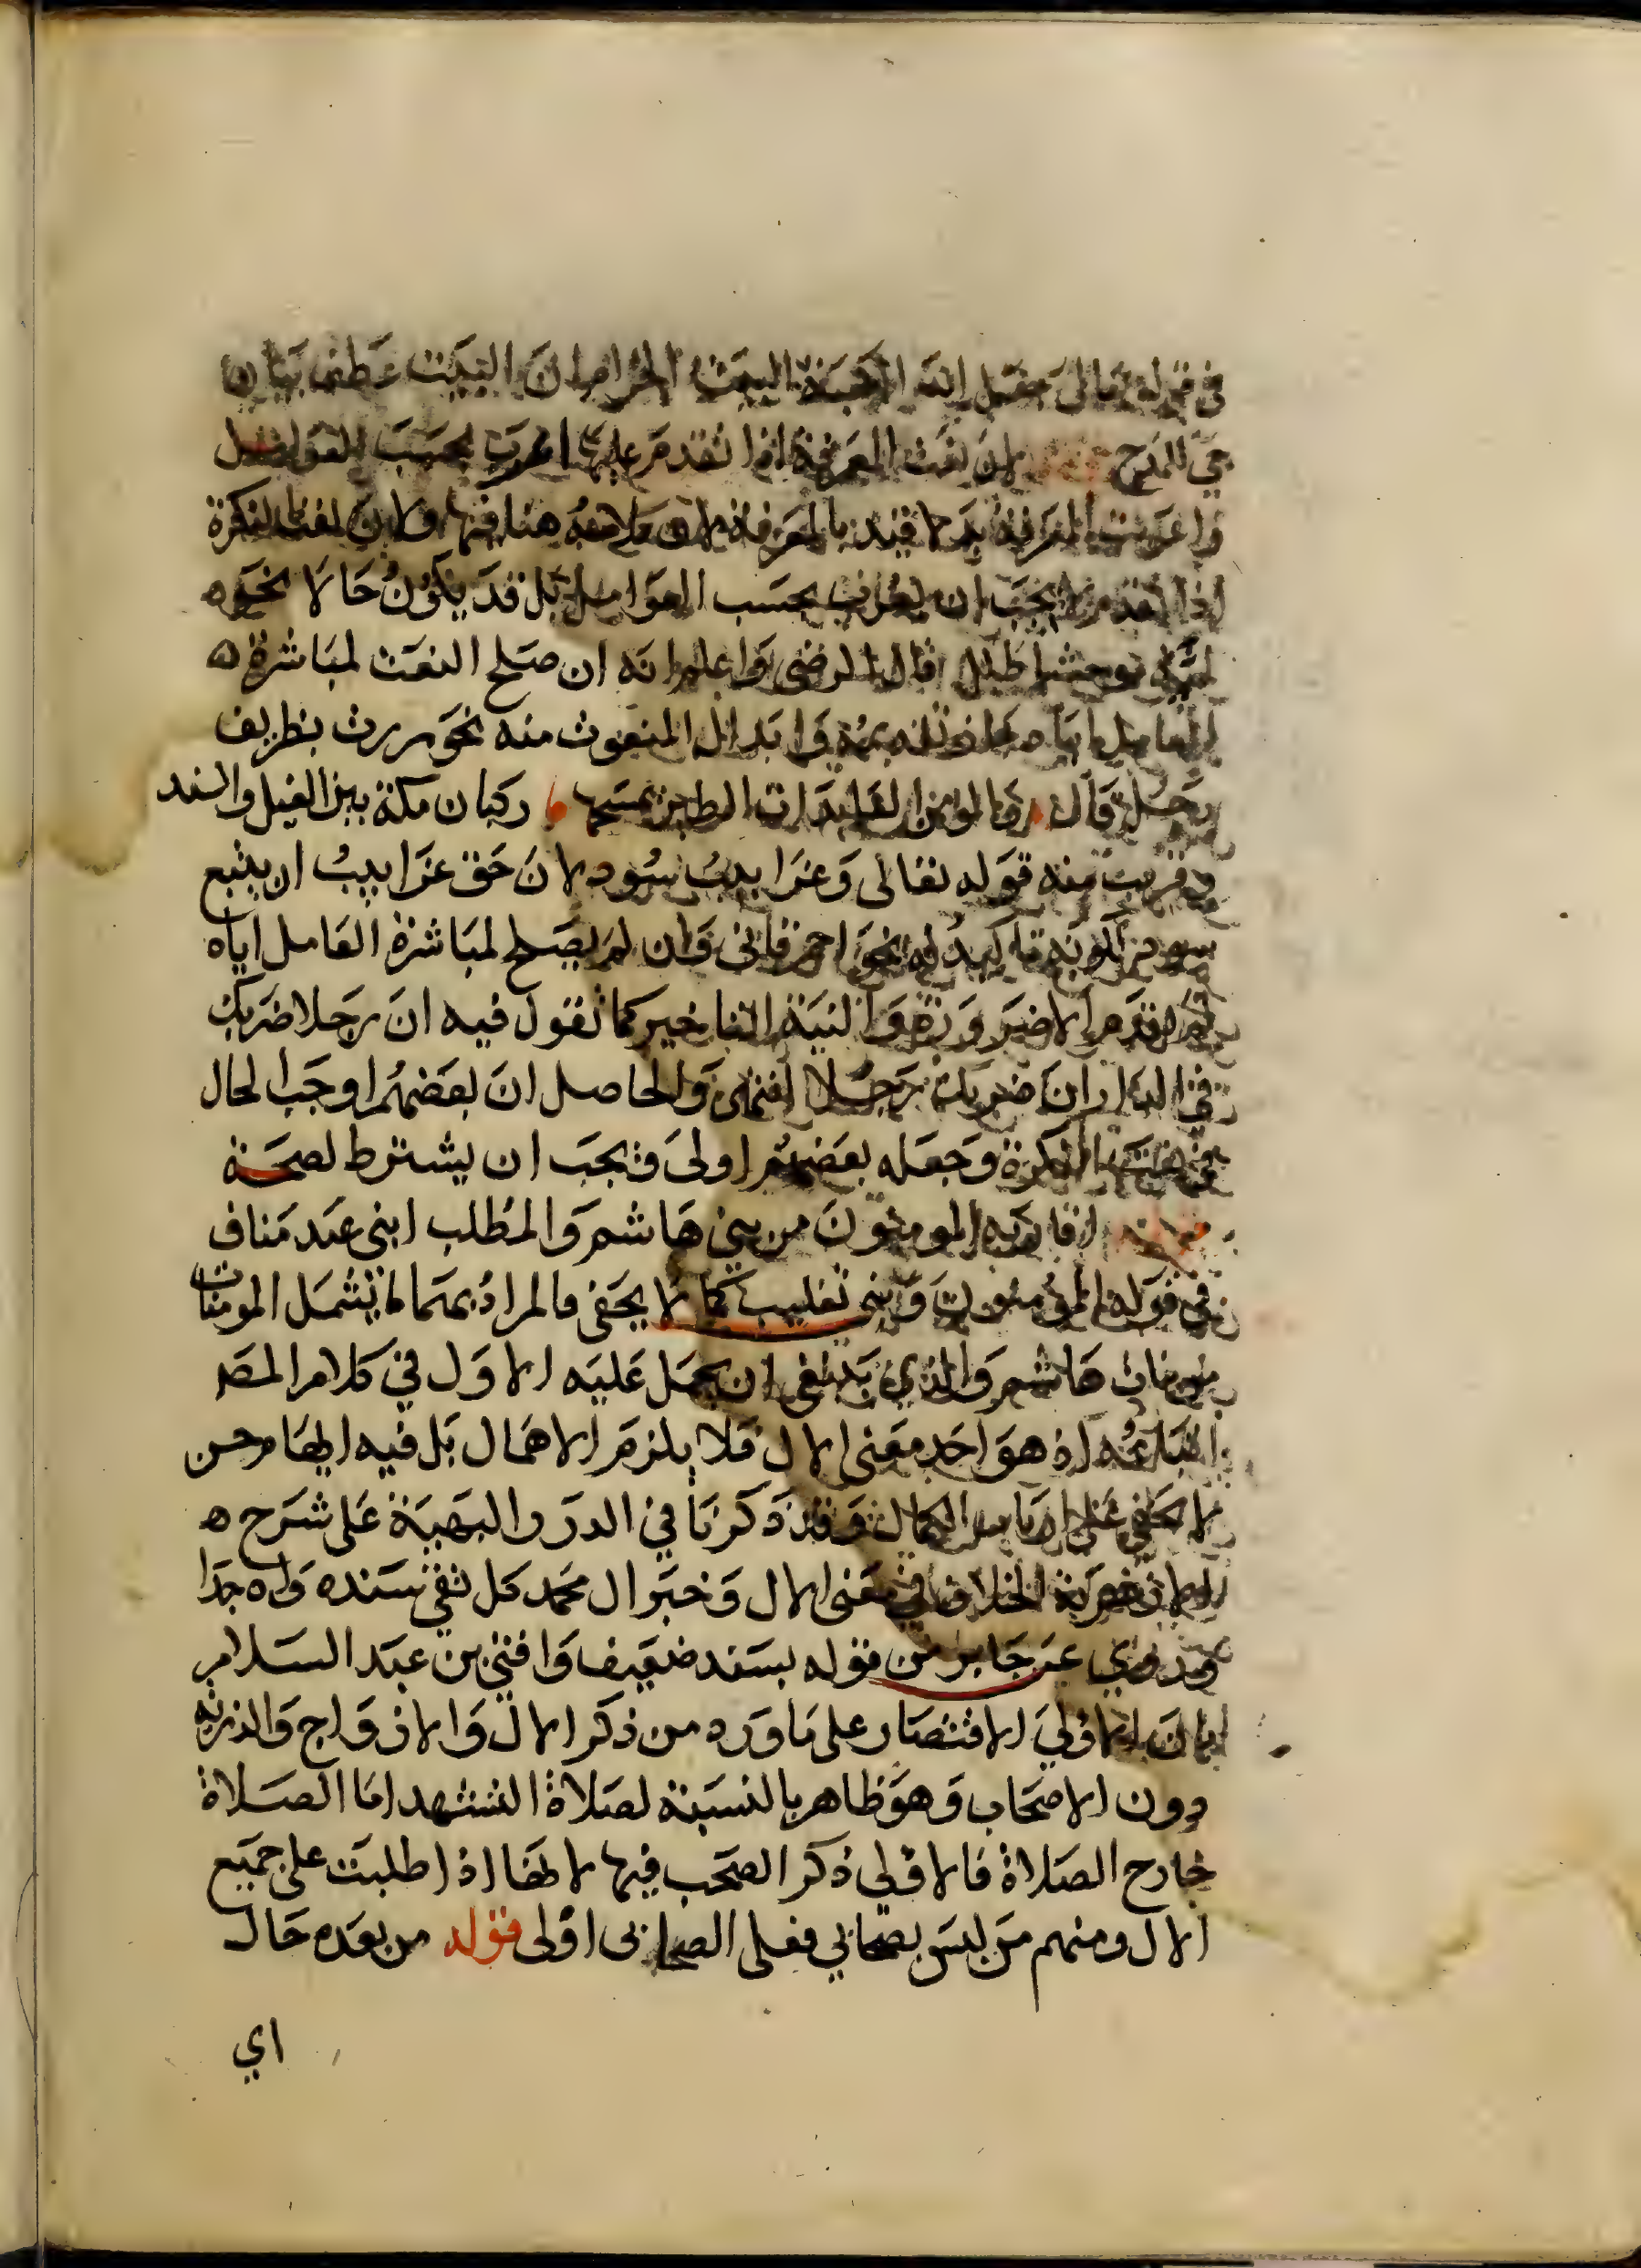 في قوله تعالى جعل الله الكعبة البيت الحرام ان البيت عطف بيان
جئ للمدح لان نعت المعرفة اذا تقدم عليها اعرب بحسب العوامل
واعربت المعرفة بدلا لان نعت النكرة
اذا تقدم لا يجب ان يعرب بحسب العوامل بل قد يكون حالا نحو ه
لمية موحشا طلل قال الرضى واعلم انه ان صلح النعت لمباشرة ه
العامل اياه جاز تقديمه وابدال المنعوت منه نحو مررت بظريف
رجل قال والمؤمن العايذات الطير يمسحها ركبان مكة بين الغيل والسند
وقريب منه قوله تعالى وغرابيب سود لان حق غرابيب ان يتبع
سود لكونه تاكيد له نحو احمر قاني وان لم يصلح لمباشرة العامل اياه
لم يقدم الا ضرورة والنية التاخير كما تقول فيه ان رجلا ضربك
في الدار ان ضربك رجلا انتهى والحاصل ان بعضهم اوجب الحال
في نعت النكرة وجعله بعضهم اولى فيجب ان يشترط لصحة
اقاربه المومنون من بني هاشم والمطلب ابني عبد مناف
في قوله المؤمنون وبني تغليب كما لا يخفى فالمراد بهما ما يشمل المومنات
وبنات هاشم والذي ينبغي ان يحمل عليه الاول في كلام المص
اذ هو احد معنى الال فلا يلزم الاهمال بل فيه ايهام حسن
لا يخفى على ارباب الكمال وقد ذكرنا في الدرر البهية على شرح ه
الخلاف في معنى الال وخبر ال محمد كل تقي سنده واه جدا
وروي عن جابر من قوله بسند ضعيف وافتى بن عبد السلام
بان الاولي الاقتصار على ما ورد من ذكر الال والازواج والذرية
دون الاصحاب وهو ظاهر بالنسبة لصلاة التشهد اما الصلاة
خارج الصلاة فالاولى ذكر الصحب فيها لانها اذا طلبت على جميع
الال ومنهم من ليس بصحابي فعلى الصحابى اولى قوله من بعده حال
اي